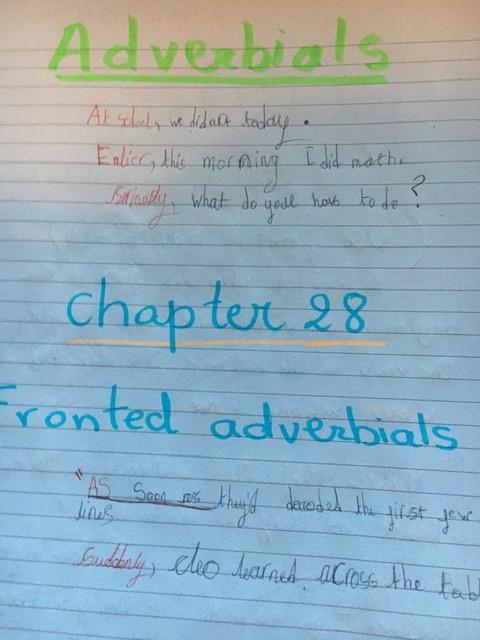 Adverbials
At school, we did art today.
Enlier, this morning I did math.
Seriously, what do have to do?
chapter 28
Fronted adverbials
"AS Soon as they'd decoded the first few
lines
Suddenly, cleo learned across the tab